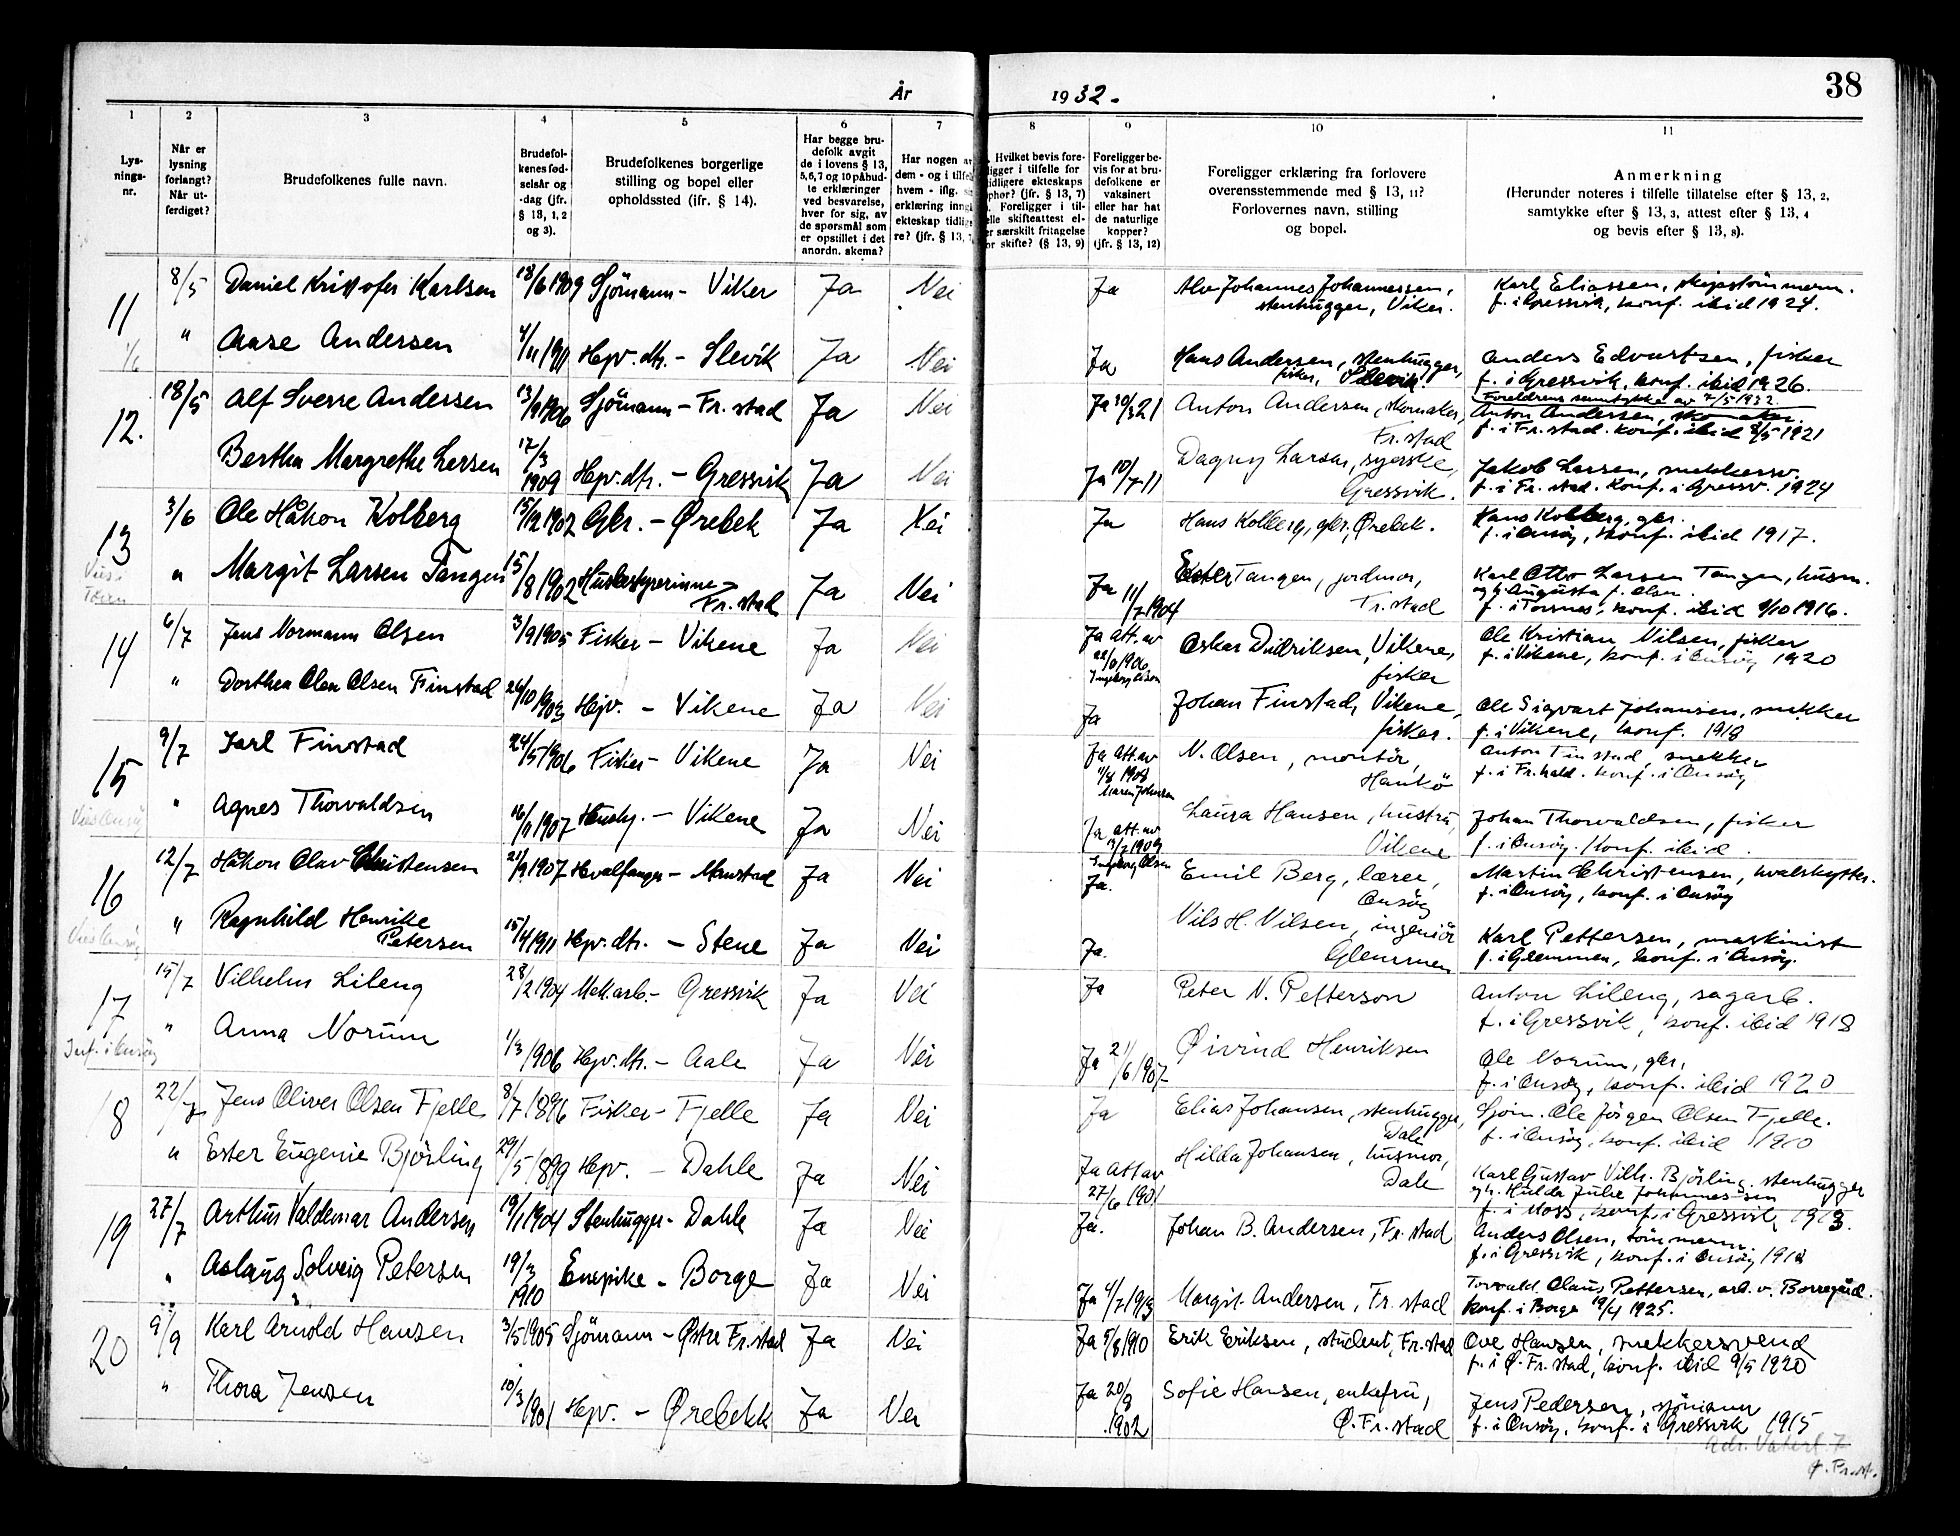 38
År 1932.
1 2 3 4 5 6 7 8 9 10 11
Lys-
nings-
nr.
Når er
lysning
forlangt?
Når ut-
ferdiget?
Brudefolkenes fulle navn.
Brudefol-
kenes fød-
selsår og
-dag (jfr.
§ 13, 1, 2
og 3).
Brudefolkenes borgerlige
stilling og bopel eller
opholdssted (ifr. § 14).
Har begge bru-
defolk avgit
de i lovens § 13,
5, 6, 7 og 10 påbud-
te erklæringer
ved besvarelse,
hver for sig, av
de spørsmål som
er opstillet i det
anordn. skema?
Har nogen av
dem - og i tilfelle
hvem - iflg. sin
erklæring inngått
ekteskap tidlige-
re? (jfr. § 13, 7)
Hvilket bevis fore-
ligger i tilfelle for
tidligere ekteskaps
ophør? (jfr. § 13, 7)
Foreligger i til-
felle skifteattest el-
er særskilt fritagelse
for skifte? (§ 13, 9)
Foreligger be-
vis for at bru-
defolkene er
vaksinert
eller har hat
de naturlige
kopper?
(jfr. § 13, 12)
Foreligger erklæring fra forlovere
overensstemmende med § 13, 11?
Forlovernes navn, stilling
og bopel.
Anmerkning
(Herunder noteres i tilfelle tillatelse efter § 13, 2,
samtykke efter § 13, 3, attest efter § 13, 4
og bevis efter § 13, 8).
11 8/5 Daniel Kristofer Karlsen 18/6 1909 Sjömann - Viker Ja Nei Ja Alv Johannes Johannessen, Karl Eliassen, skipstömmerm.
stenhugger, Viker. f. i Gressvik, konf. ibid 1924.
1/6 " Aase Andersen 4/11 1911 Hpv. dtr. - Slevik Ja Nei Ja Hans Andersen, stenhugger, Anders Edvartsen, fisker
fisker, Slevik. f. i Gressvik, konf. ibid 1926.
Foreldrens samtykke av 7/5 1932
12. 18/5 Alf Sverre Andersen 13/9 1906 Sjömann - Fr.stad Ja Nei Ja 30/3 21 Anton Andersen, skomaker, Anton Andersen, skomaker
Fr.stad f. i Fr.stad. konf. ibid 8/5 1921
Berthe Margrethe Larsen 17/3 1909 Hpv. dtr. - Gressvik Ja Nei Ja 10/7 11 Dagny Larsen, syerske, Jakob Larsen, snekkersv.
Gressvik. f. i Fr.stad. Konf. i Gressv. 1924
13 3/6 Ole Håkon Kolberg 15/12 1902 Gbr. - Ørebek Ja Nei Ja Hans Kolberg, gbr., Ørebek. Hans Kolberg, gbr.
f. i Onsöy, konf. ibid 1917.
" Margit Larsen Tangen 15/8 1902 Husbestyrerinne - Ja Nei Ja 11/7 1904 Ester Tangen, jordmor, Karl Otto Larsen Tangen, husm.
Fr.stad Fr.stad og h. Augusta f. Olsen.
f. i Torsnes, konf. ibid 1/10 1916.
14 6/7 Jens Normann Olsen 3/9 1905 Fisker - Vikene Ja Nei Ja att. av Oskar Didriksen, Vikene, Ole Kristian Nilsen, fisker
fisker f. i Vikene, konf. i Onsöy 1920
" Dorthea Olea Olsen Finstad 24/10 1903 Hpv. - Vikene Ja Nei Ja Johan Finstad, Vikene, Ole Sigvart Johansen, snekker
fisker. f. i Vikene, konf. 1918
15 9/7 Karl Finstad 24/5 1906 Fisker - Vikene Ja Nei Ja att. av N. Olsen, montör, Anton Finstad, snekker
1/8 1908 Hankö f. i Fr.hald. konf. i Onsöy
" Agnes Thorvaldsen 16/11 1907 Hush. - Vikene Ja Nei Ja att. av Laura Hansen, hustru, Johan Thorvaldsen, fisker
Vikene f. i Onsöy. Konf. ibid.
Vies Onsöy
16 12/7 Håkon Olav Christensen 21/9 1907 Hvalfanger - Manstad Ja Nei Ja. Emil Berg, lærer, Martin Christensen, hvalskytter.
Onsöy f. i Onsöy, konf. i Onsöy
" Ragnhild Henrike
Petersen 15/4 1911 Hpv. dtr. - Stene Ja Nei Ja. Nils H. Nilsen, ingeniör Karl Pettersen, maskinist
Glemmen f. i Glemmen, konf. i Onsöy.
Vies Onsöy
17 15/7 Vilhelm Lileng 28/2 1904 Mek. arb. - Gressvik Ja Nei Ja Peter N. Petterson Anton Lileng, sagarb.
f. i Gressvik, konf. ibid 1918
" Anna Norum 1/3 1906 Hpv. dtr. - Aale Ja Nei Ja 21/6 1907 Øivind Henriksen Ole Norum, gbr,
f. i Onsöy, konf. ibid 1920
18 22/7 Jens Oliver Olsen Fjelle 8/7 1896 Fisker - Fjelle Ja Nei Ja Elias Johansen, stenhugger, Sjöm. Ole Jörgen Olsen Fjelle.
Dale f. i Onsöy, konf. ibid 1910
" Ester Eugenie Björling 29/5 1899 Hpv. - Dahle Ja Nei Ja att av Hilda Johansen, husmor, Karl Gustav Vilh. Björling, stenhugger
27/6 1901 Dale og h. Hulda Julie Johannessen
f. i Moss, konf. i Gressvik 1913.
19 27/7 Arthur Valdemar Andersen 19/1 1904 Stenhugger - Dahle Ja Nei Ja. Johan B. Andersen, Fr.stad Anders Olsen, tömmerm.
f. i Gressvik, konf. i Onsöy 1918
" Aslaug Solveig Petersen 19/3 1910 Enepike - Borge Ja Nei Ja 4/7 1913 Margit Andersen, Fr.stad Torvald Claus Pettersen, arb. v. Borregård.
konf. i Borge 19/4 1925.
20 9/9 Karl Arnold Hansen 3/5 1905 Sjömann - Østre Fr.stad Ja Nei Ja 5/8 1910 Erik Eriksen, student, Fr.stad Ove Hansen, snekkersvend
f. i Ø. Fr.stad, konf. ibid 9/5 1920
" Thora Jensen 10/3 1901 Hpv. - Ørebekk Ja Nei Ja 20/8 1902 Sofie Hansen, enkefru, Jens Pedersen, sjömann
Ø. Fr.stad f. i Onsöy, konf. i Gressvik 1915
Adr. Vaterl. 7
Ø. Fr.st.